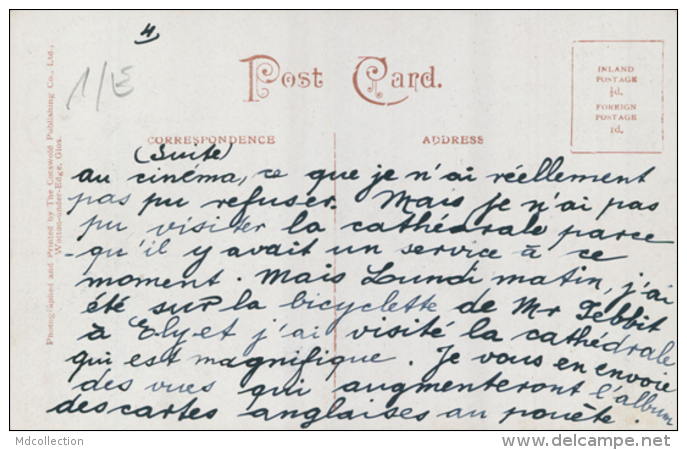 4
1/E
Post Card.
INLAND
POSTAGE
½d.
FOREIGN
POSTAGE
1d.
CORRESPONDENCE
ADDRESS
Photographed and Printed by The Cotswold Publishing Co., Ltd.,
Wotton-under-Edge, Glos.
(Suite)
au cinéma, ce que je n'ai réellement
pas pu refuser. Mais je n'ai pas
pu visiter la cathédrale parce
qu'il y avait un service à ce
moment. Mais Lundi matin, j'ai
été sur la bicyclette de Mr Tebbit
à Ely et j'ai visité la cathédrale
qui est magnifique. Je vous en envoie
des vues qui augmenteront l'album
des cartes anglaises au pouête.
Mdcollection
www.delcampe.net